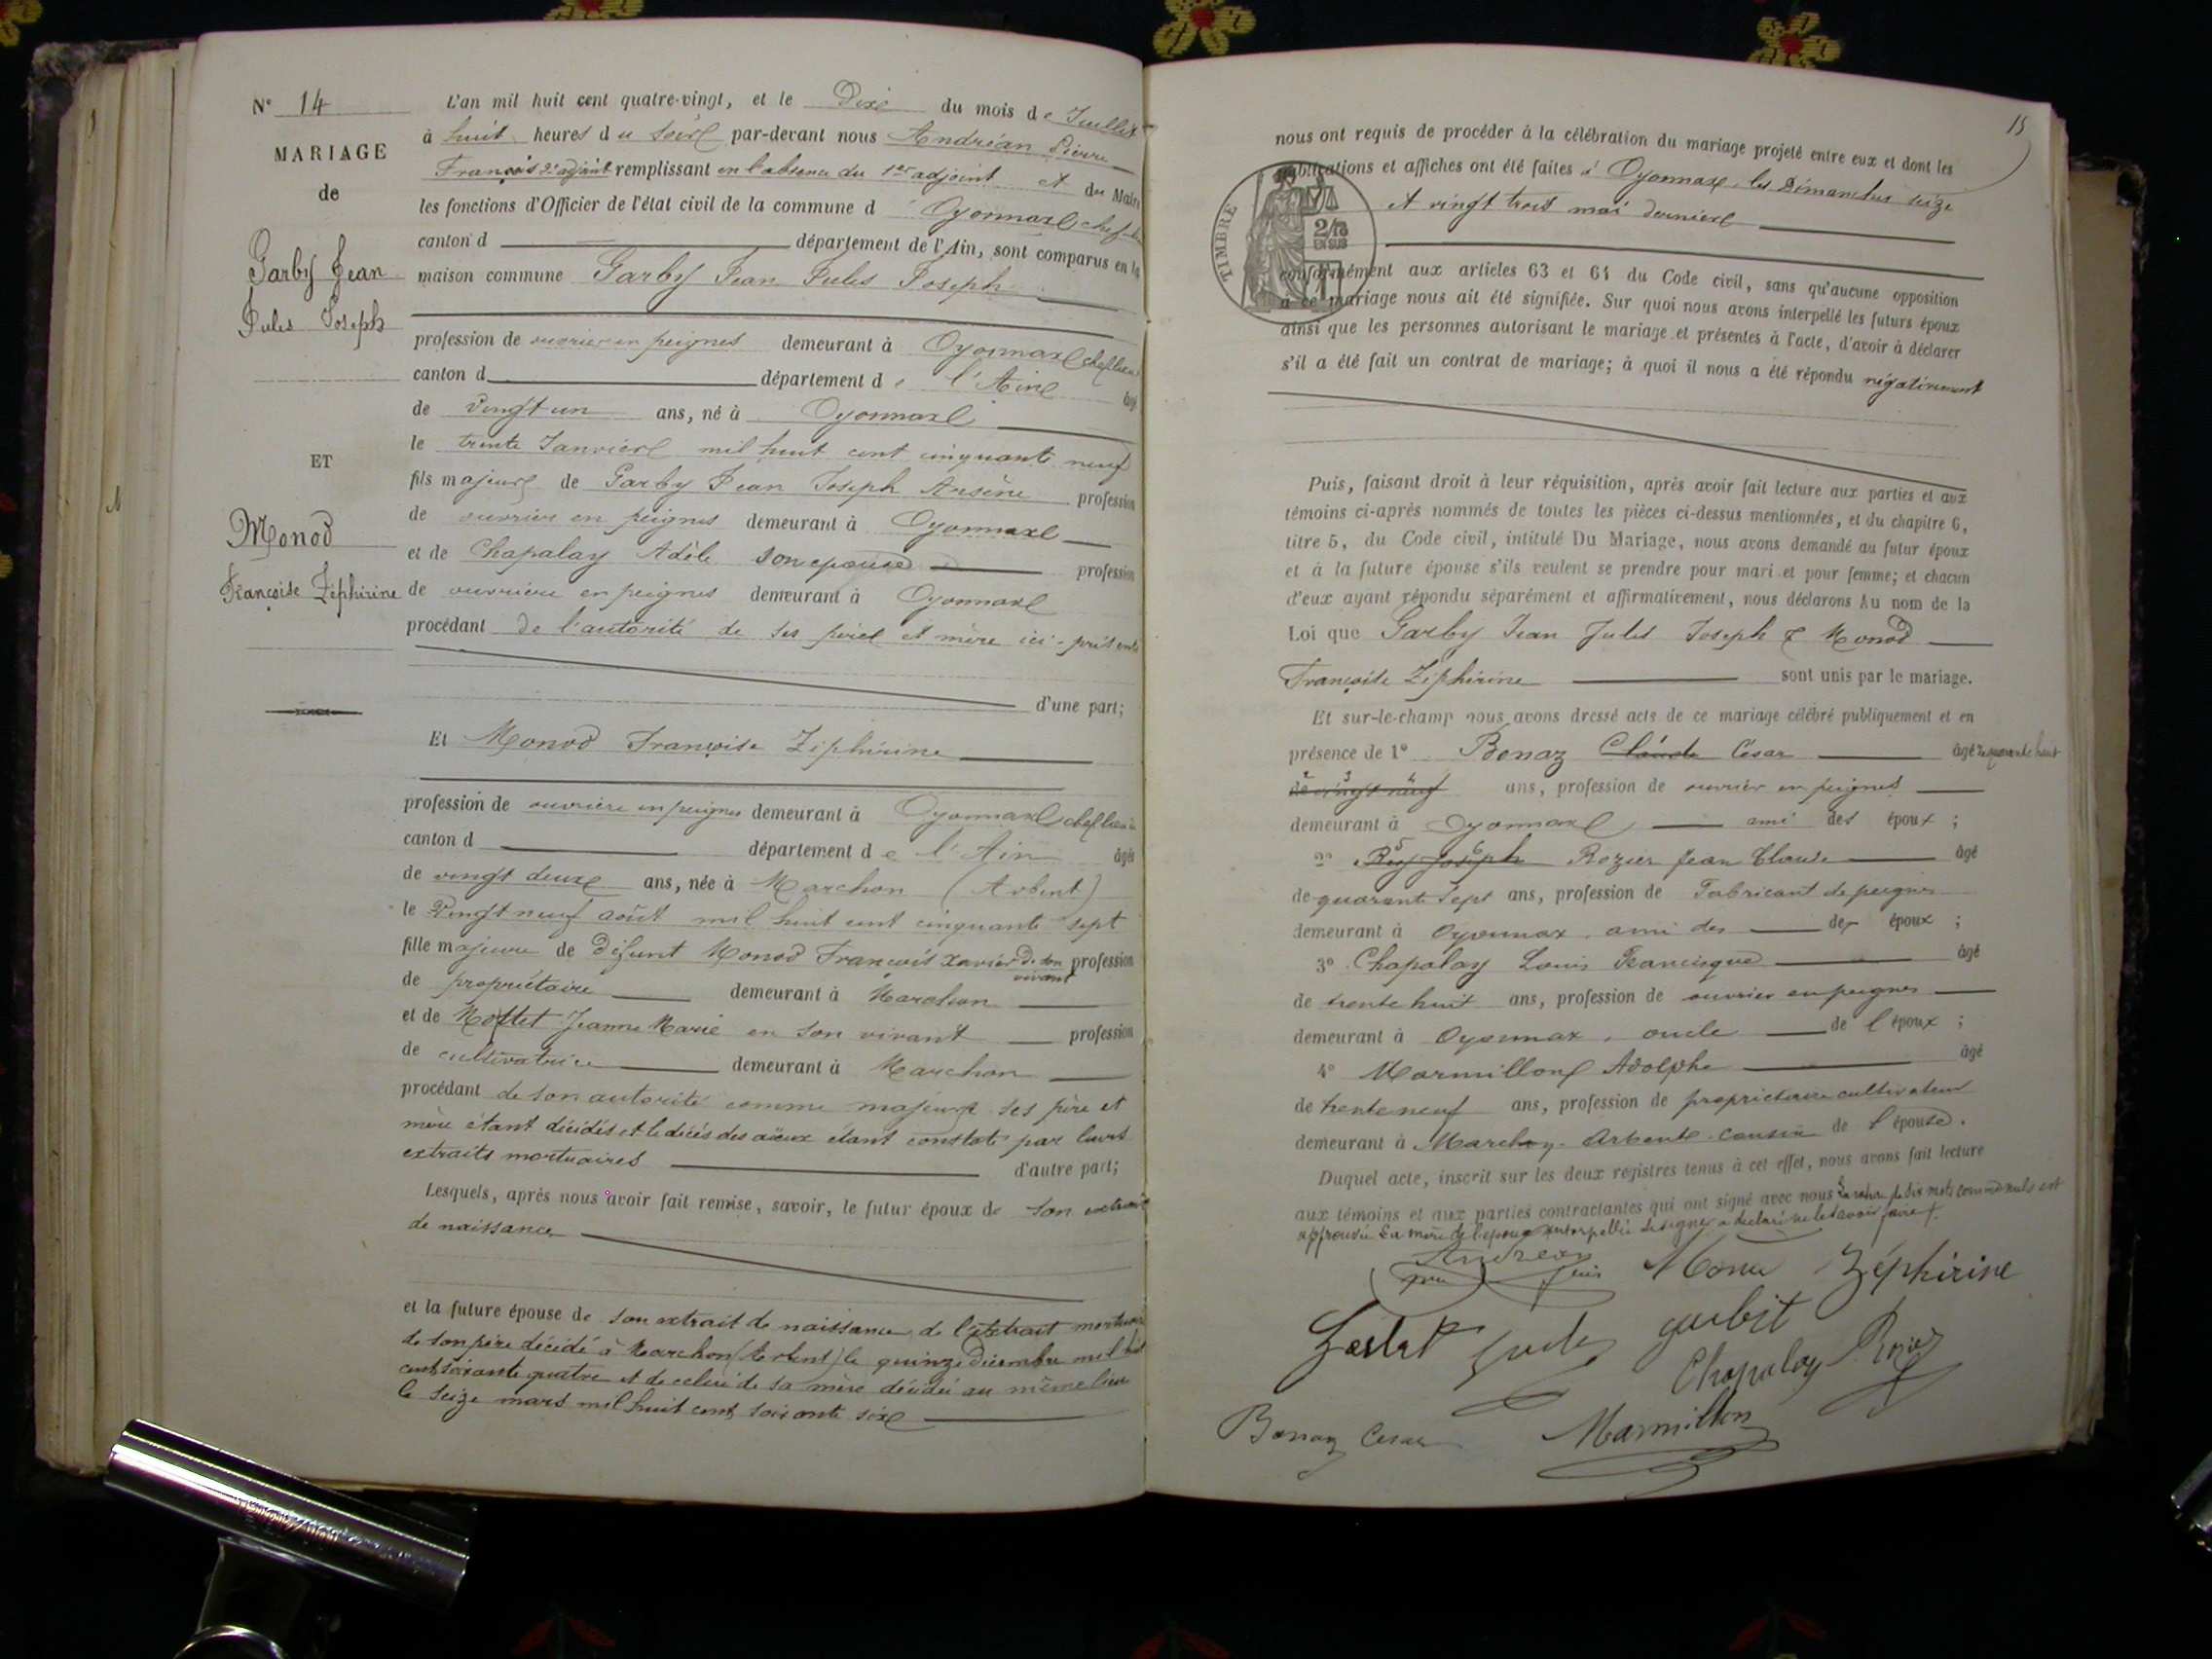 N° 14
MARIAGE
de
Garby Jean
Jules Joseph
ET
Monod
Françoise Zéphirine
L'an mil huit cent quatre-vingt, et le Dix du mois de Juillet
à huit heures du soir par-devant nous Andréan Pierre
François 2e adjoint remplissant en l'absence du 1er adjoint et du Maire
les fonctions d'Officier de l'état civil de la commune d Oyonnax chef-lieu
canton d département de l'Ain, sont comparus en la
maison commune Garby Jean Jules Joseph
profession de ouvrier en peignes demeurant à Oyonnax chef lieu
canton d département de l'Ain âgé
de vingt un ans, né à Oyonnax
le trente Janvier mil huit cent cinquante neuf
fils majeur de Garby Jean Joseph Arsène profession
de ouvrier en peignes demeurant à Oyonnax
et de Chapalay Adèle son epouse profession
de ouvrière en peignes demeurant à Oyonnax
procédant de l'autorité de ses père et mère ici présents
d'une part;
Et Monod Françoise Zéphirine
profession de ouvrière en peignes demeurant à Oyonnax chef lieu
canton d département de l'Ain âgée
de vingt deux ans, née à Marchon (Arbent)
le Vingt neuf août mil huit cent cinquante sept
fille majeure de défunt Monod François Xavier de son vivant profession
de propriétaire demeurant à Marchon
et de Mottet Jeanne Marie en son vivant profession
de cultivatrice demeurant à Marchon
procédant de son autorité comme majeure ses père et
mère étant décédés et le décès des aïeux étant constaté par leurs
extraits mortuaires d'autre part;
Lesquels, après nous avoir fait remise, savoir, le futur époux de son extrait
de naissance
et la future épouse de son extrait de naissance de l'extrait mortuaire
de son père décédé à Marchon (Arbent) le quinze Décembre mil huit
cent soixante quatre et de celui de sa mère décédée au même lieu
le seize mars mil huit cent soixante six
15
nous ont requis de procéder à la célébration du mariage projeté entre eux et dont les
publications et affiches ont été faites à Oyonnax, les Dimanches seize
et vingt trois mai dernier
TIMBRE
2/10
EN SUS
conformément aux articles 63 et 64 du Code civil, sans qu'aucune opposition
à ce mariage nous ait été signifiée. Sur quoi nous avons interpellé les futurs époux
ainsi que les personnes autorisant le mariage et présentes à l'acte, d'avoir à déclarer
s'il a été fait un contrat de mariage; à quoi il nous a été répondu négativement
Puis, faisant droit à leur réquisition, après avoir fait lecture aux parties et aux
témoins ci-après nommés de toutes les pièces ci-dessus mentionnées, et du chapitre 6,
titre 5, du Code civil, intitulé Du Mariage, nous avons demandé au futur époux
et à la future épouse s'ils veulent se prendre pour mari et pour femme; et chacun
d'eux ayant répondu séparément et affirmativement, nous déclarons Au nom de la
Loi que Garby Jean Jules Joseph & Monod
Françoise Zéphirine sont unis par le mariage.
Et sur-le-champ nous avons dressé acte de ce mariage célébré publiquement et en
présence de 1° Bonaz Claude César âgé de quarante huit
de vingt neuf ans, profession de ouvrier en peignes
demeurant à Oyonnax ami des époux ;
2° Rey Joseph Rozier Jean Claude âgé
de quarante sept ans, profession de Fabricant de peignes
demeurant à Oyonnax, ami des des époux ;
3° Chapalay Louis Francisque âgé
de trente huit ans, profession de ouvrier en peignes
demeurant à Oyonnax, oncle de l'époux ;
4° Marmillon Adolphe âgé
de trente neuf ans, profession de propriétaire cultivateur
demeurant à Marchon-Arbent-cousin de l'épouse.
Duquel acte, inscrit sur les deux registres tenus à cet effet, nous avons fait lecture
aux témoins et aux parties contractantes qui ont signé avec nous la rature de six mots comme nuls est
approuvée La mère de l'époux interpellée de signer a déclaré ne le savoir faire
Andrean
Zéphirine
Jules garbit
Chapalay Rozier
Bonaz Cesar Marmillon